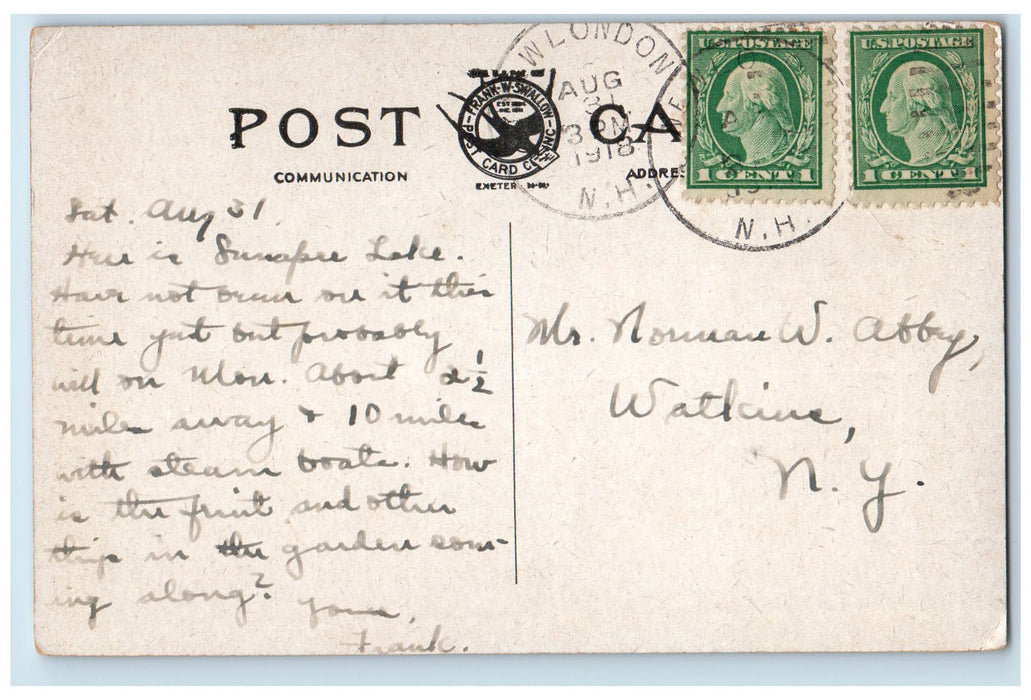 POST CA
COMMUNICATION
ADDRES
FRANK·W·SWALLOW
POST CARD CO. INC.
EXETER N·H·
W LONDON
AUG
31
3 PM
1918
N.H.
N.H.
U.S.POSTAGE
1 CENT 1
U.S.POSTAGE
1 CENT
Sat. Aug 31.
Here is Sunapee Lake.
Have not been on it this
time yet but probably
will on Mon. About 2 1/2
miles away & 10 miles
with steam boats. How
is the fruit and other
things in the garden com-
ing along?
Yours,
Frank.
Mr. Norman W. Abbey,
Watkins,
N. Y.